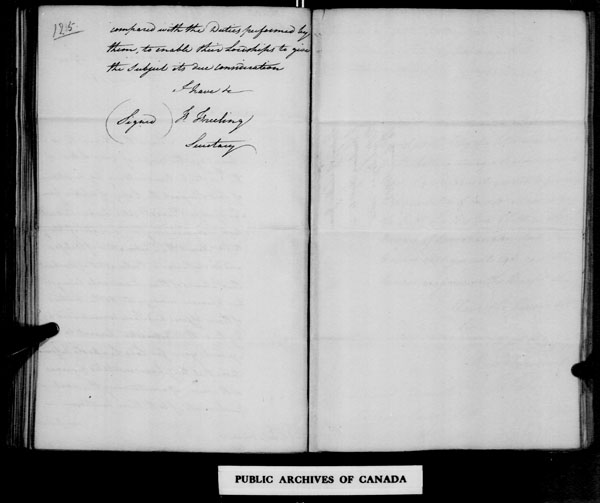 195
compared with the Duties performed by
them, to enable their Lordships to give
the Subject its due consideration
I have &c
(Signed) F Freeling
Secretary
PUBLIC ARCHIVES OF CANADA